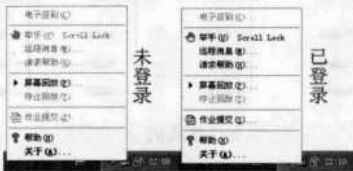 电子签到(C)
举手(U) Scroll Lock
远程消息(M)...
请求帮助(R)...
屏幕回放(P)...
停止回放(T)
作业提交(Q)...
帮助(H)
关于(A)...
未登录
电子签到(C)
举手(U) Scroll Lock
远程消息(M)...
请求帮助(R)...
屏幕回放(P)...
停止回放(T)
作业提交(Q)...
帮助(H)
关于(A)...
已登录